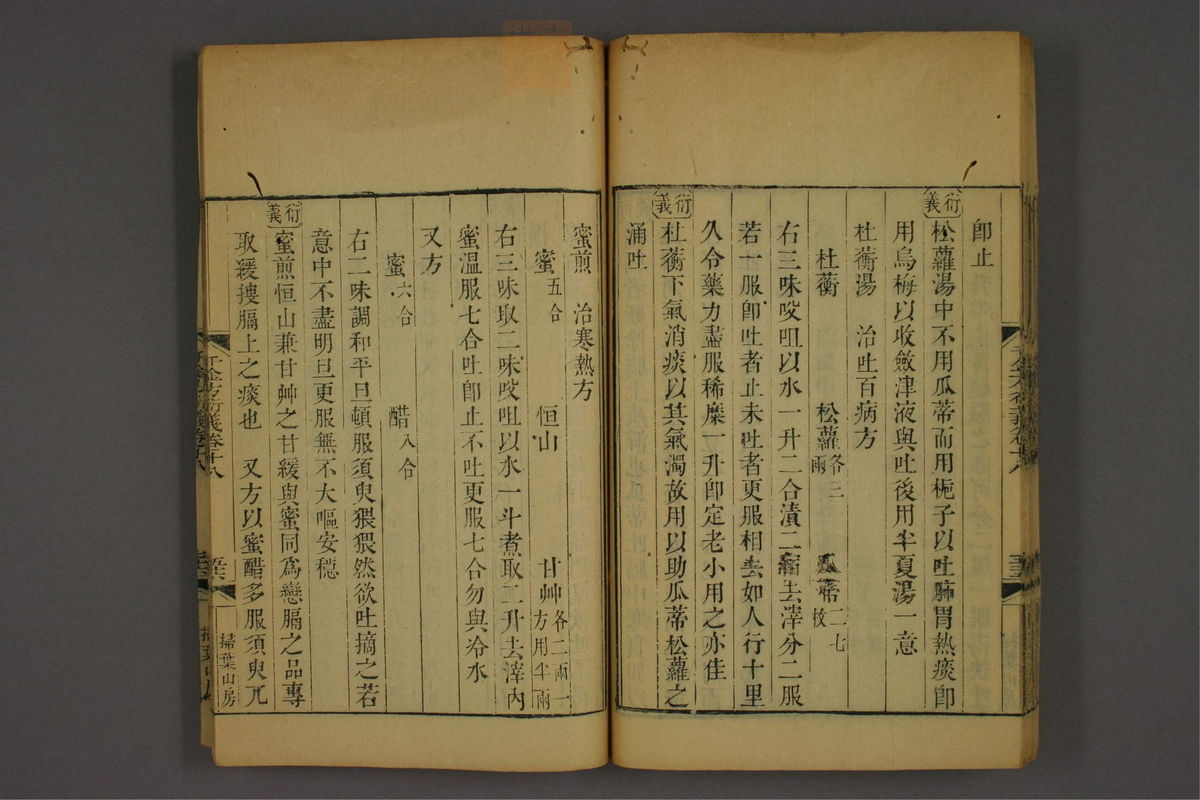 卽止
衍義
松蘿湯中不用瓜蒂而用梔子以吐肺胃熱痰卽
用烏梅以收斂津液與吐後用半夏湯一意
杜蘅湯　治吐百病方
杜蘅　松蘿各三兩　瓜蒂二七枚
右三味㕮咀以水一升二合漬二宿去滓分二服
若一服卽吐者止未吐者更服相去如人行十里
久令藥力盡服稀糜一升卽定老小用之亦佳
衍義
杜蘅下氣消痰以其氣濁故用以助瓜蒂松蘿之
涌吐
蜜煎　治寒熱方
蜜五合　恒山　甘艸各二兩一方用半兩
右三味取二味㕮咀以水一斗煮取二升去滓內
蜜溫服七合吐卽止不吐更服七合勿與冷水
又方
蜜六合　醋八合
右二味調和平旦頓服須臾猥猥然欲吐擿之若
意中不盡明旦更服無不大嘔安穩
衍義
蜜煎恒山兼甘艸之甘緩與蜜同爲戀膈之品專
取緩摟膈上之痰也　又方以蜜醋多服須臾兀
千金方衍義卷十八
掃葉山房